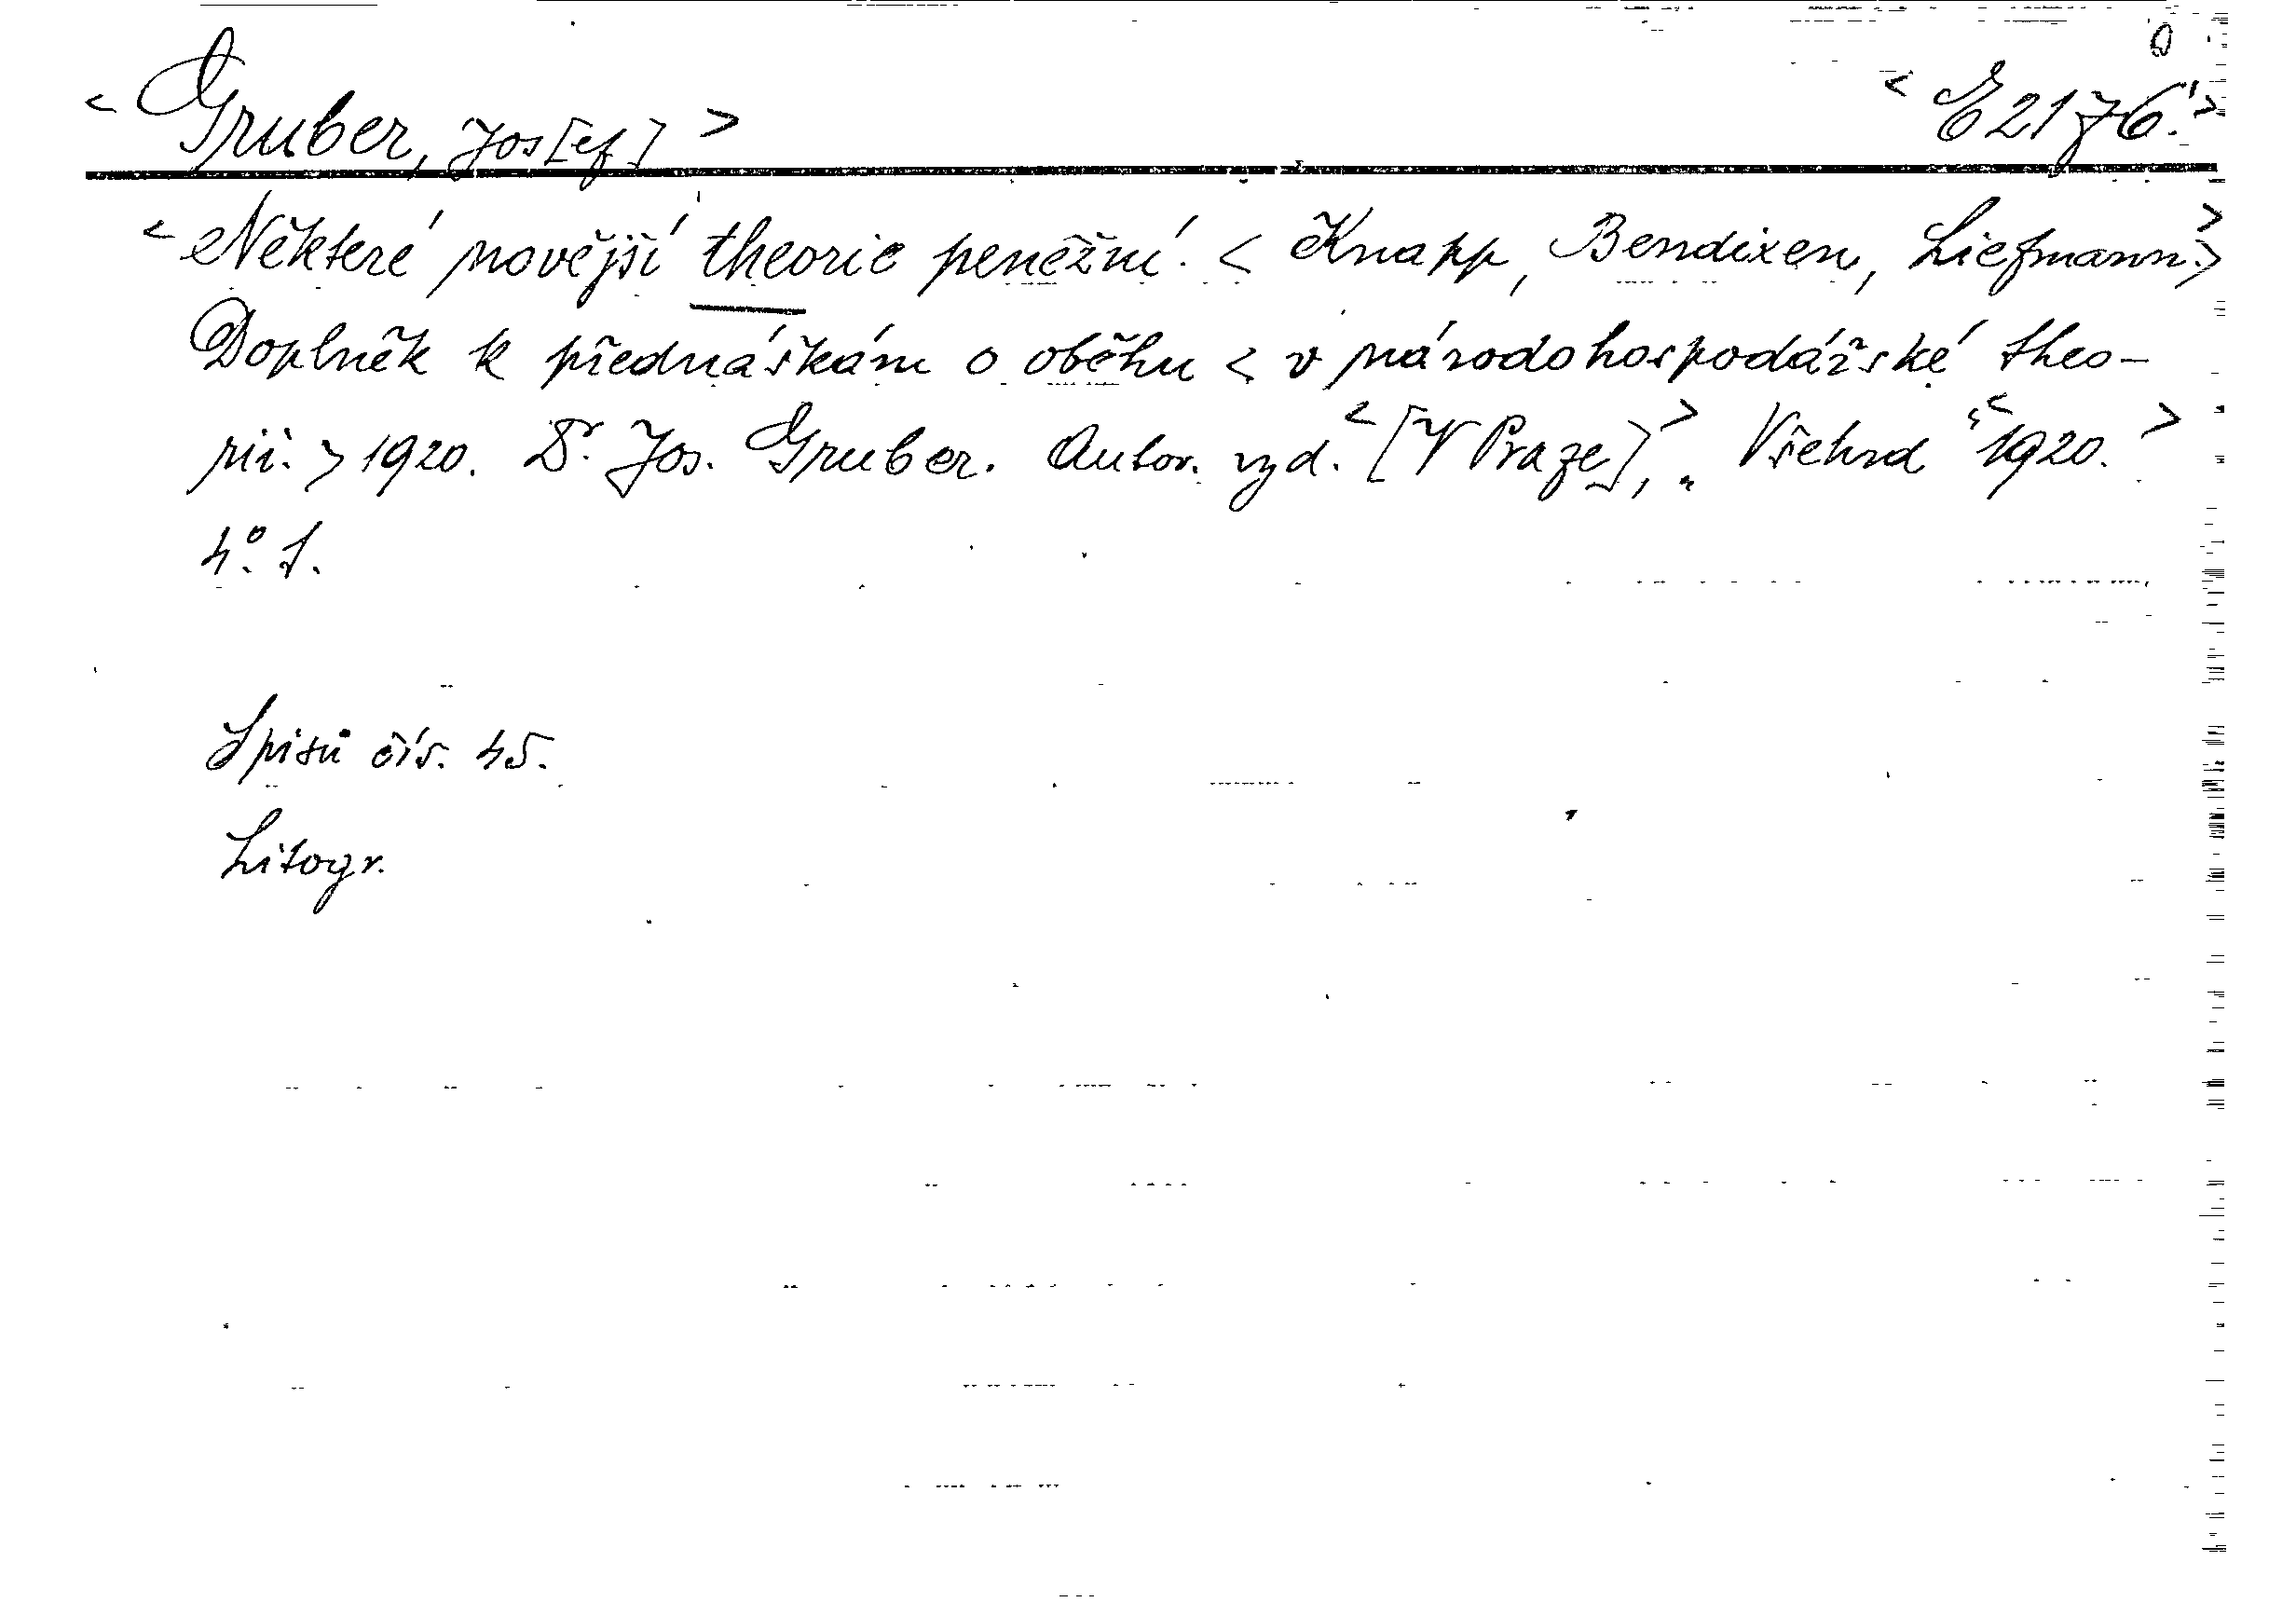 < Gruber, Jos[ef] > < E 2176. >
< Některé novější theorie peněžní. < Knapp, Bendixen, Liefmann. > >
Doplněk k přednáškám o oběhu < v národohospodářské theo-
rii. > 1920. Dr. Jos. Gruber. Autor. vyd. < [V Praze], > „Všehrd“ < 1920. >
4°. S.
Spisů čís. 45.
Litogr.